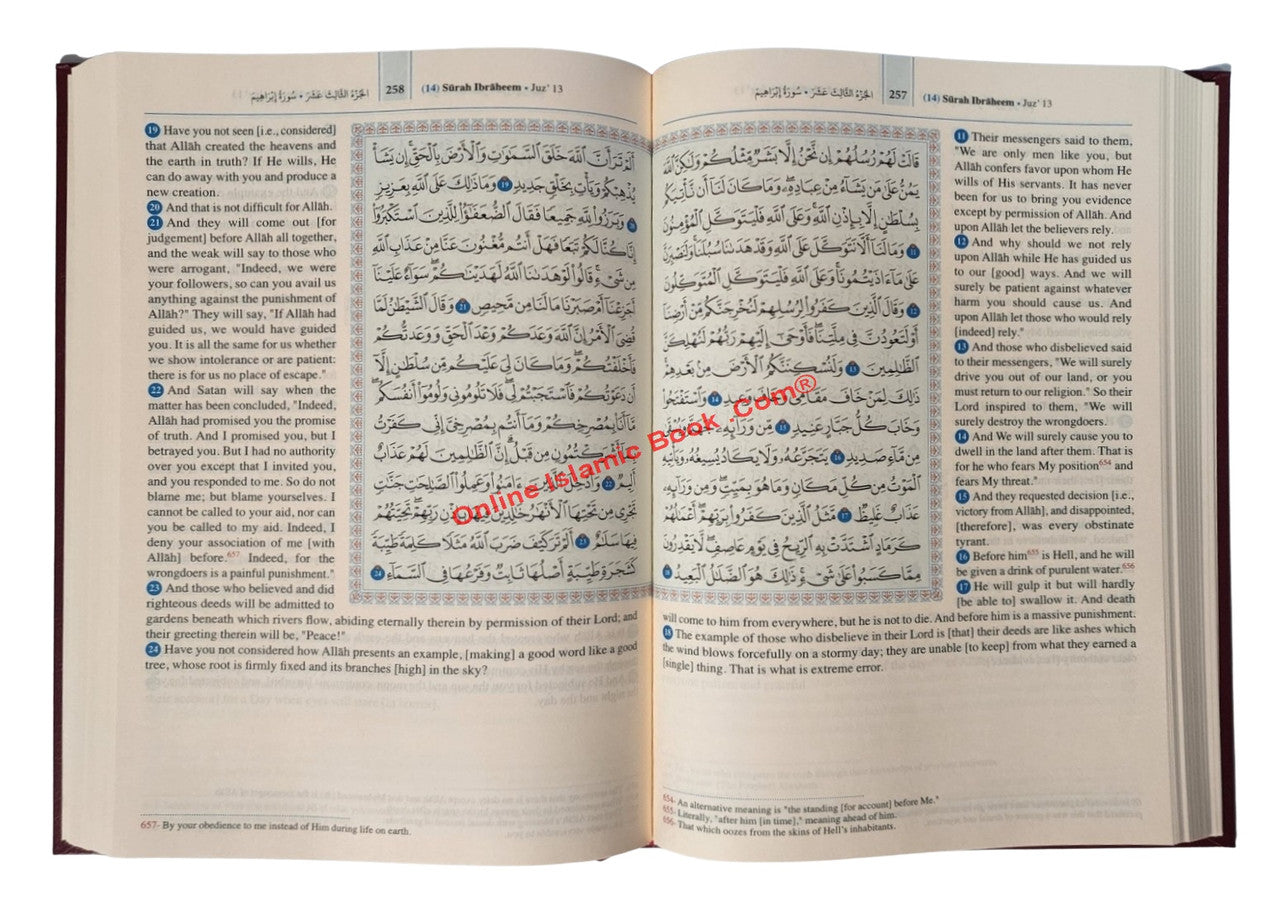 257
(14) Sūrah Ibrāheem • Juz' 13
الجُزْءُ الثَّالِثَ عَشَرَ • سُورَةُ إِبْرَاهِيمَ
قَالَتْ لَهُمْ رُسُلُهُمْ إِن نَّحْنُ إِلَّا بَشَرٌ مِّثْلُكُمْ وَلَٰكِنَّ ٱللَّهَ
يَمُنُّ عَلَىٰ مَن يَشَآءُ مِنْ عِبَادِهِۦۖ وَمَا كَانَ لَنَآ أَن نَّأْتِيَكُم
بِسُلْطَٰنٍ إِلَّا بِإِذْنِ ٱللَّهِۚ وَعَلَى ٱللَّهِ فَلْيَتَوَكَّلِ ٱلْمُؤْمِنُونَ
11 وَمَا لَنَآ أَلَّا نَتَوَكَّلَ عَلَى ٱللَّهِ وَقَدْ هَدَىٰنَا سُبُلَنَاۚ وَلَنَصْبِرَنَّ
عَلَىٰ مَآ ءَاذَيْتُمُونَاۚ وَعَلَى ٱللَّهِ فَلْيَتَوَكَّلِ ٱلْمُتَوَكِّلُونَ
12 وَقَالَ ٱلَّذِينَ كَفَرُوا۟ لِرُسُلِهِمْ لَنُخْرِجَنَّكُم مِّنْ أَرْضِنَآ
أَوْ لَتَعُودُنَّ فِى مِلَّتِنَاۖ فَأَوْحَىٰٓ إِلَيْهِمْ رَبُّهُمْ لَنُهْلِكَنَّ
ٱلظَّٰلِمِينَ 13 وَلَنُسْكِنَنَّكُمُ ٱلْأَرْضَ مِنۢ بَعْدِهِمْۚ
ذَٰلِكَ لِمَنْ خَافَ مَقَامِى وَخَافَ وَعِيدِ 14 وَٱسْتَفْتَحُوا۟
وَخَابَ كُلُّ جَبَّارٍ عَنِيدٍ 15 مِّن وَرَآئِهِۦ جَهَنَّمُ وَيُسْقَىٰ
مِن مَّآءٍ صَدِيدٍ 16 يَتَجَرَّعُهُۥ وَلَا يَكَادُ يُسِيغُهُۥ وَيَأْتِيهِ
ٱلْمَوْتُ مِن كُلِّ مَكَانٍ وَمَا هُوَ بِمَيِّتٍۖ وَمِن وَرَآئِهِۦ
عَذَابٌ غَلِيظٌ 17 مَّثَلُ ٱلَّذِينَ كَفَرُوا۟ بِرَبِّهِمْۖ أَعْمَٰلُهُمْ
كَرَمَادٍ ٱشْتَدَّتْ بِهِ ٱلرِّيحُ فِى يَوْمٍ عَاصِفٍۖ لَّا يَقْدِرُونَ
مِمَّا كَسَبُوا۟ عَلَىٰ شَىْءٍۚ ذَٰلِكَ هُوَ ٱلضَّلَٰلُ ٱلْبَعِيدُ 18
11 Their messengers said to them,
"We are only men like you, but
Allāh confers favor upon whom He
wills of His servants. It has never
been for us to bring you evidence
except by permission of Allāh. And
upon Allāh let the believers rely.
12 And why should we not rely
upon Allāh while He has guided us
to our [good] ways. And we will
surely be patient against whatever
harm you should cause us. And
upon Allāh let those who would rely
[indeed] rely."
13 And those who disbelieved said
to their messengers, "We will surely
drive you out of our land, or you
must return to our religion." So their
Lord inspired to them, "We will
surely destroy the wrongdoers.
14 And We will surely cause you to
dwell in the land after them. That is
for he who fears My position654 and
fears My threat."
15 And they requested decision [i.e.,
victory from Allāh], and disappointed,
[therefore], was every obstinate
tyrant.
16 Before him655 is Hell, and he will
be given a drink of purulent water.656
17 He will gulp it but will hardly
[be able to] swallow it. And death
will come to him from everywhere, but he is not to die. And before him is a massive punishment.
18 The example of those who disbelieve in their Lord is [that] their deeds are like ashes which
the wind blows forcefully on a stormy day; they are unable [to keep] from what they earned a
[single] thing. That is what is extreme error.
654- An alternative meaning is "the standing [for account] before Me."
655- Literally, "after him [in time]," meaning ahead of him.
656- That which oozes from the skins of Hell's inhabitants.
258
(14) Sūrah Ibrāheem • Juz' 13
الجُزْءُ الثَّالِثَ عَشَرَ • سُورَةُ إِبْرَاهِيمَ
أَلَمْ تَرَ أَنَّ ٱللَّهَ خَلَقَ ٱلسَّمَٰوَٰتِ وَٱلْأَرْضَ بِٱلْحَقِّۚ إِن يَشَأْ
يُذْهِبْكُمْ وَيَأْتِ بِخَلْقٍ جَدِيدٍ 19 وَمَا ذَٰلِكَ عَلَى ٱللَّهِ بِعَزِيزٍ
20 وَبَرَزُوا۟ لِلَّهِ جَمِيعًا فَقَالَ ٱلضُّعَفَٰٓؤُا۟ لِلَّذِينَ ٱسْتَكْبَرُوٓا۟
إِنَّا كُنَّا لَكُمْ تَبَعًا فَهَلْ أَنتُم مُّغْنُونَ عَنَّا مِنْ عَذَابِ ٱللَّهِ
مِن شَىْءٍۚ قَالُوا۟ لَوْ هَدَىٰنَا ٱللَّهُ لَهَدَيْنَٰكُمْۖ سَوَآءٌ عَلَيْنَآ
أَجَزِعْنَآ أَمْ صَبَرْنَا مَا لَنَا مِن مَّحِيصٍ 21 وَقَالَ ٱلشَّيْطَٰنُ لَمَّا
قُضِىَ ٱلْأَمْرُ إِنَّ ٱللَّهَ وَعَدَكُمْ وَعْدَ ٱلْحَقِّ وَوَعَدتُّكُمْ
فَأَخْلَفْتُكُمْۖ وَمَا كَانَ لِىَ عَلَيْكُم مِّن سُلْطَٰنٍ إِلَّآ
أَن دَعَوْتُكُمْ فَٱسْتَجَبْتُمْ لِىۖ فَلَا تَلُومُونِى وَلُومُوٓا۟ أَنفُسَكُمۖ
مَّآ أَنَا۠ بِمُصْرِخِكُمْ وَمَآ أَنتُم بِمُصْرِخِىَّۖ إِنِّى كَفَرْتُ
بِمَآ أَشْرَكْتُمُونِ مِن قَبْلُۗ إِنَّ ٱلظَّٰلِمِينَ لَهُمْ عَذَابٌ
أَلِيمٌ 22 وَأُدْخِلَ ٱلَّذِينَ ءَامَنُوا۟ وَعَمِلُوا۟ ٱلصَّٰلِحَٰتِ جَنَّٰتٍ
تَجْرِى مِن تَحْتِهَا ٱلْأَنْهَٰرُ خَٰلِدِينَ فِيهَا بِإِذْنِ رَبِّهِمْۖ تَحِيَّتُهُمْ
فِيهَا سَلَٰمٌ 23 أَلَمْ تَرَ كَيْفَ ضَرَبَ ٱللَّهُ مَثَلًا كَلِمَةً طَيِّبَةً
كَشَجَرَةٍ طَيِّبَةٍ أَصْلُهَا ثَابِتٌ وَفَرْعُهَا فِى ٱلسَّمَآءِ 24
19 Have you not seen [i.e., considered]
that Allāh created the heavens and
the earth in truth? If He wills, He
can do away with you and produce a
new creation.
20 And that is not difficult for Allāh.
21 And they will come out [for
judgement] before Allāh all together,
and the weak will say to those who
were arrogant, "Indeed, we were
your followers, so can you avail us
anything against the punishment of
Allāh?" They will say, "If Allāh had
guided us, we would have guided
you. It is all the same for us whether
we show intolerance or are patient:
there is for us no place of escape."
22 And Satan will say when the
matter has been concluded, "Indeed,
Allāh had promised you the promise
of truth. And I promised you, but I
betrayed you. But I had no authority
over you except that I invited you,
and you responded to me. So do not
blame me; but blame yourselves. I
cannot be called to your aid, nor can
you be called to my aid. Indeed, I
deny your association of me [with
Allāh] before.657 Indeed, for the
wrongdoers is a painful punishment."
23 And those who believed and did
righteous deeds will be admitted to
gardens beneath which rivers flow, abiding eternally therein by permission of their Lord; and
their greeting therein will be, "Peace!"
24 Have you not considered how Allāh presents an example, [making] a good word like a good
tree, whose root is firmly fixed and its branches [high] in the sky?
657- By your obedience to me instead of Him during life on earth.
Online Islamic Book .Com®